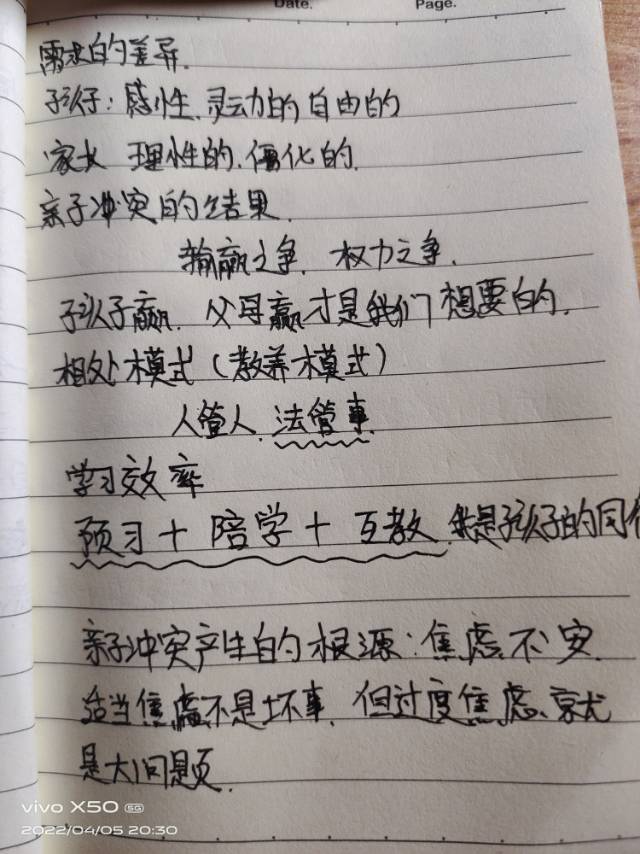 Date.
Page.
需求的差异.
孩子：感性.灵动的 自由的
家长 理性的.僵化的.
亲子冲突的结果.
输赢之争. 权力之争.
孩子赢. 父母赢才是我们想要的.
相处模式（教养模式）
人管人. 法管事.
学习效率
预习＋陪学＋互教.我是孩子的同
亲子冲突产生的根源：焦虑.不安.
适当焦虑不是坏事. 但过度焦虑.就
是大问题.
vivo X50 5G
2022/04/05 20:30